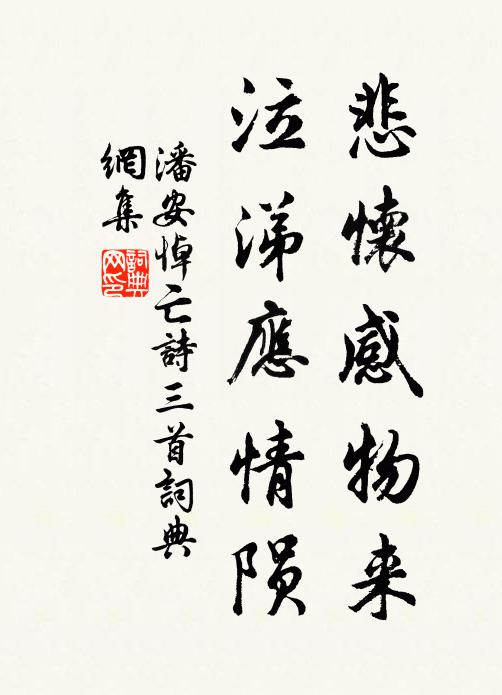 悲懷感物来
泣涕應情隕
潘安悼亡詩三首詞典
網集
詞典
网印